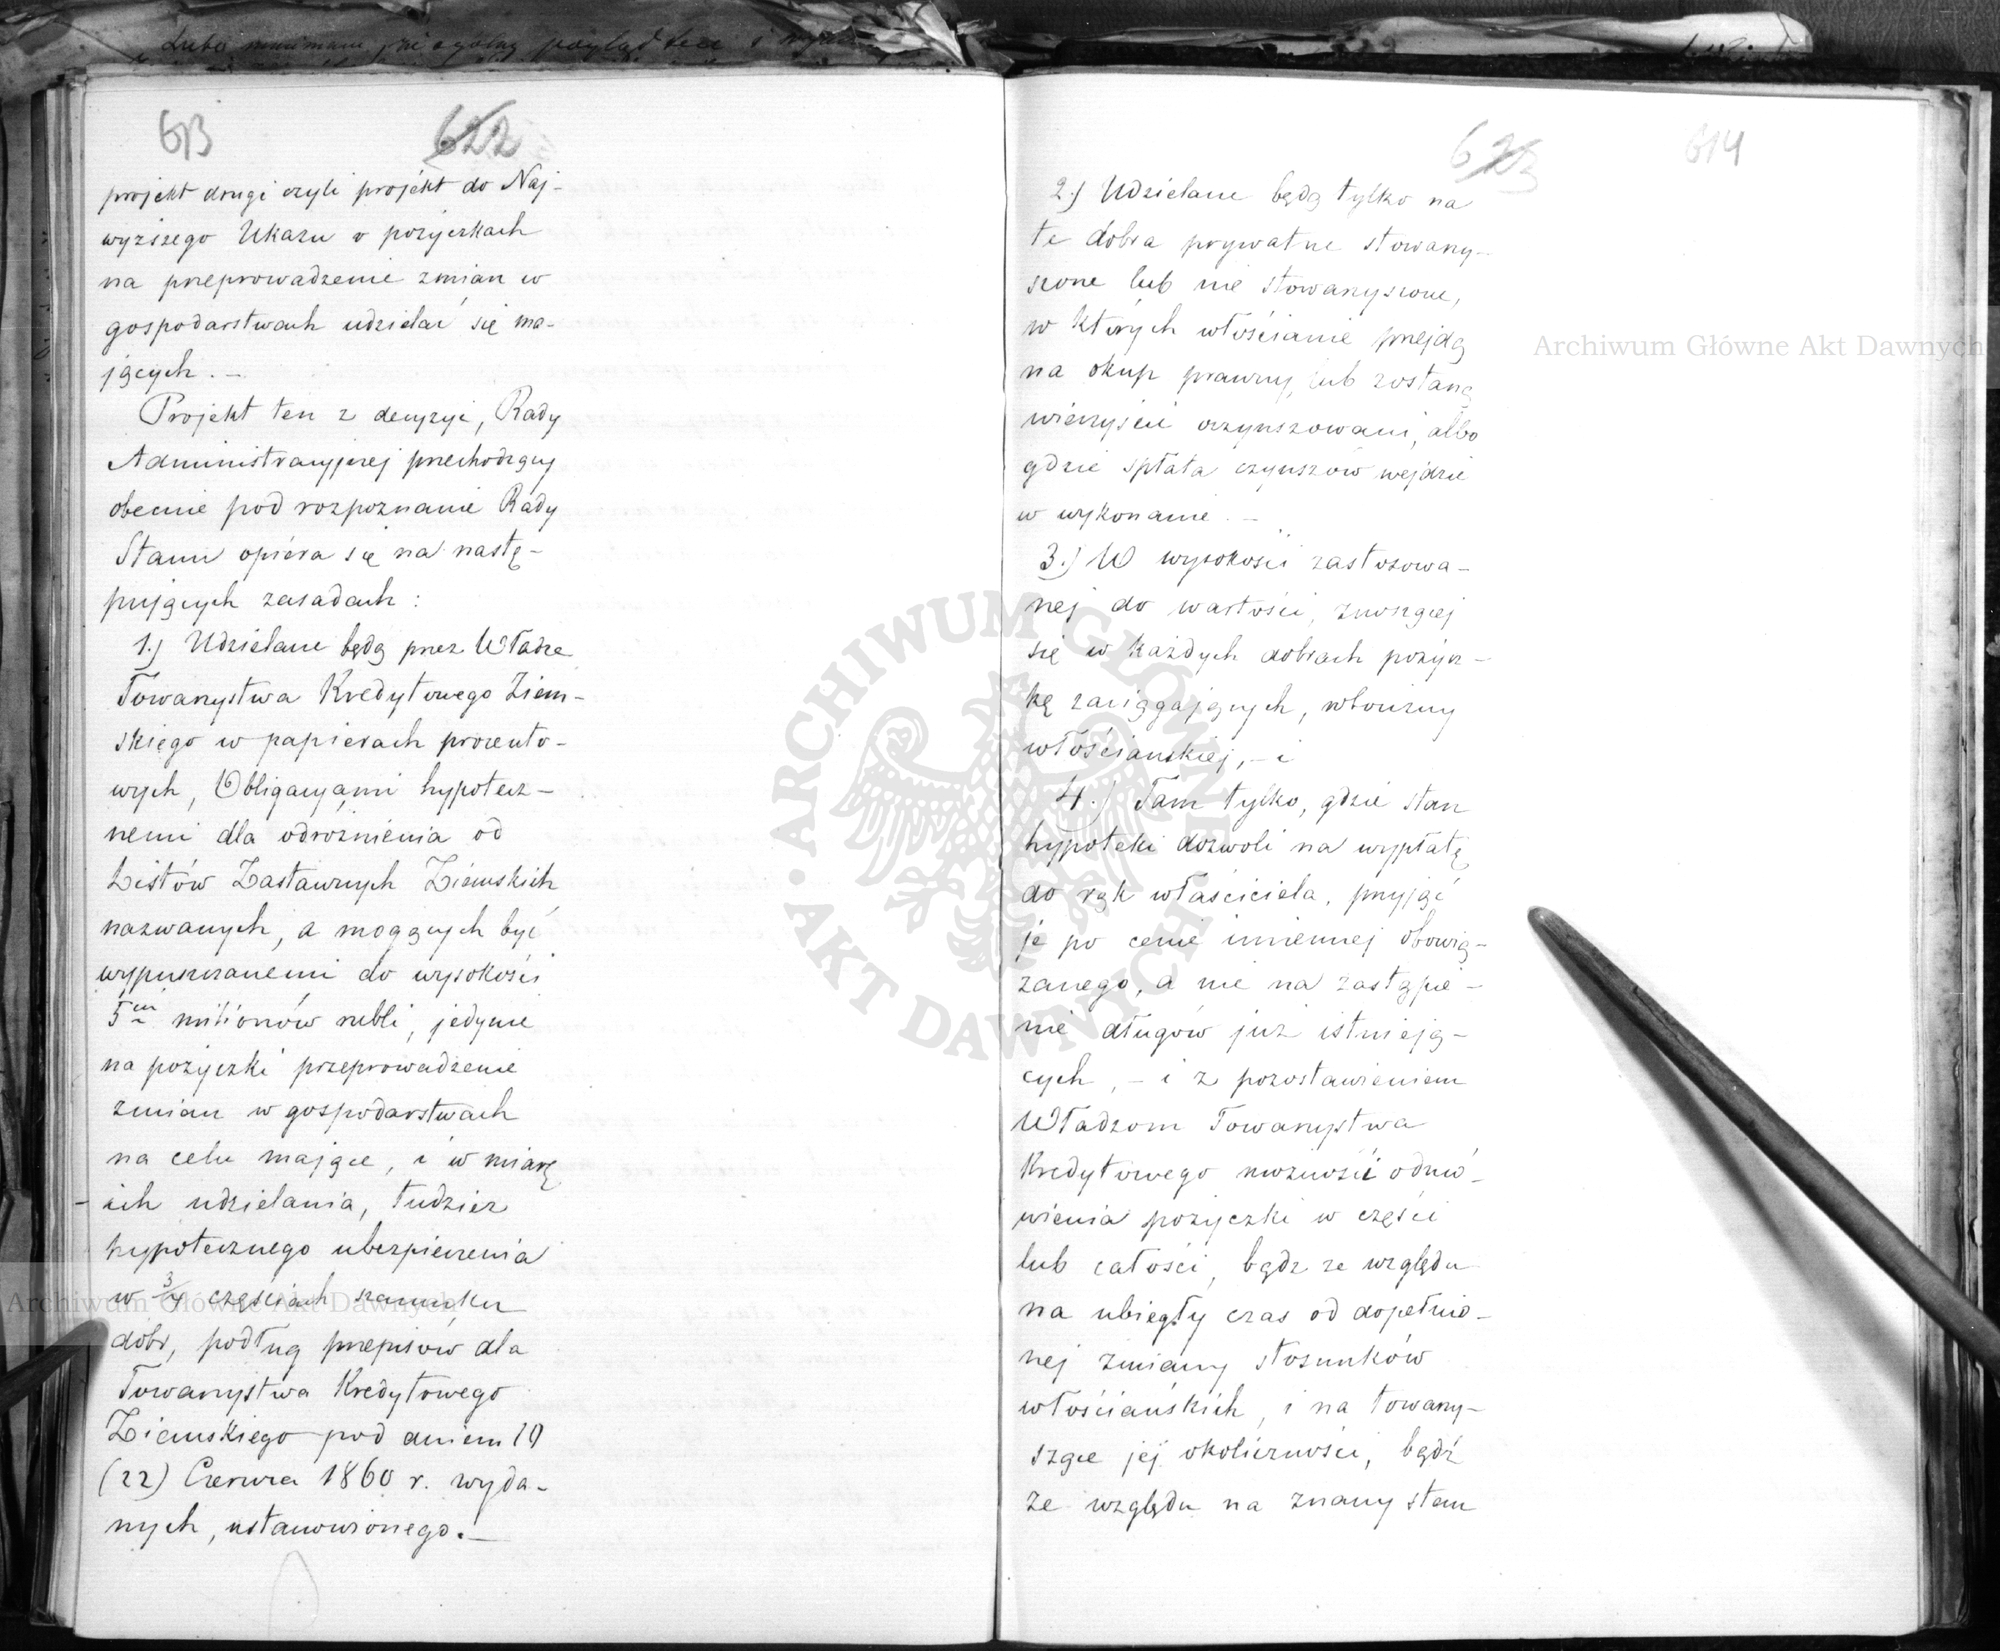 613
622
projekt drugi czyli projekt do Naj-
wyższego Ukazu o pożyczkach
na przeprowadzenie zmian w
gospodarstwach udzielać się ma-
jących. —
Projekt ten z decyzyi, Rady
Administracyjnej przechodzący
obecnie pod rozpoznanie Rady
Stanu opiéra się na nastę-
pujących zasadach:
1.) Udzielane będą przez Władze
Towarzystwa Kredytowego Ziem-
skiego w papierach procento-
wych, Obligacyami hypotecz-
nemi dla odróżnienia od
Listów Zastawnych Ziemskich
nazwanych, a mogących być
wypuszczanemi do wysokości
5ciu milionów rubli, jedynie
na pożyczki przeprowadzenie
zmian w gospodarstwach
na celu mające, i w miarę
ich udzielania, tudzież
hypotecznego ubezpieczenia
w 3/4 częściach szacunku
dóbr, podług przepisów dla
Towarzystwa Kredytowego
Ziemskiego pod dniem 10
(22) Czerwca 1860 r. wyda-
nych, ustanowionego. —
623
614
2.) Udzielane będą tylko na
te dobra prywatne stowarzy-
szone lub nie stowarzyszone,
w których włościanie przejdą
na okup prawny, lub zostaną
wieczyście oczynszowani, albo
gdzie spłata czynszów wejdzie
w wykonanie. —
3.) W wysokości zastosowa-
nej do wartości, znoszącej
się w każdych dobrach pożycz-
kę zaciągających, robocizny
włościańskiej, — i
4.) Tam tylko, gdzie stan
hypoteki dozwoli na wypłatę
do rąk właściciela, przyjąć
je po cenie imiennej obowią-
zanego, a nie na zastąpie-
nie długów już istnieją-
cych, — i z pozostawieniem
Władzom Towarzystwa
Kredytowego możność odmó-
wienia pożyczki w części
lub całości, bądź ze względu
na ubiegły czas od dopełnio-
nej zmiany stosunków
włościańskich, i na towarzy-
szące jej okoliczności, bądź
ze względu na znany stan
Archiwum Główne Akt Dawnych
Archiwum Główne Akt Dawnych
ARCHIWUM GŁÓWNE AKT DAWNYCH